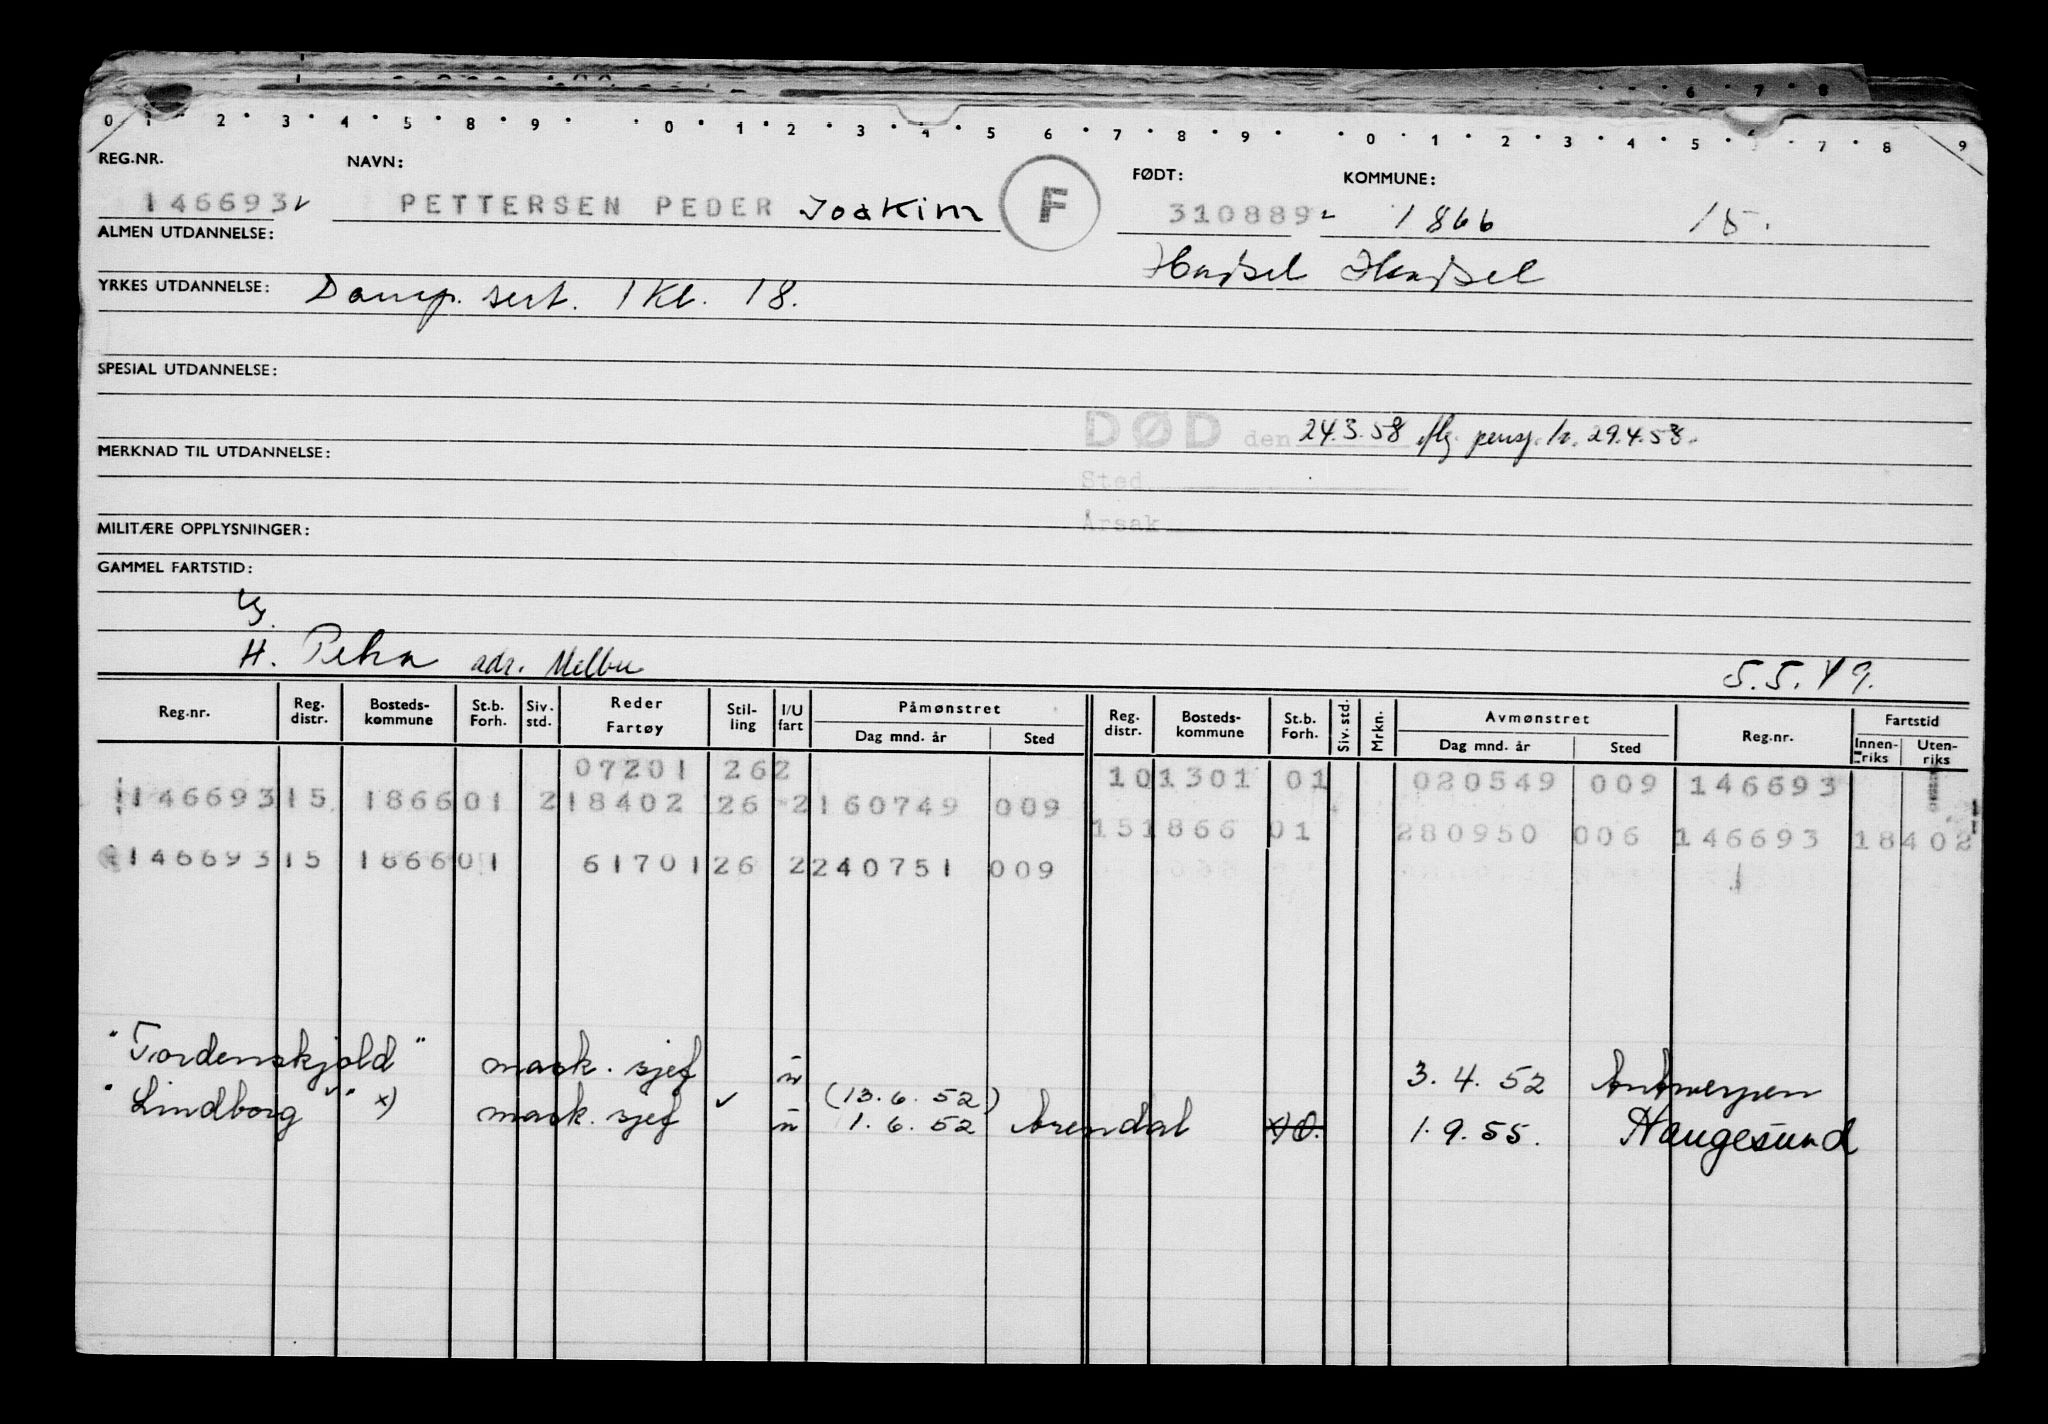 0 1 2 3 4 5 8 9 0 1 2 3 4 5 6 7 8 9 0 1 2 3 4 5 6 7 8 9
REG.NR. NAVN: FØDT: KOMMUNE:
146693 PETTERSEN PEDER Joakim F 310889 1866 15.
ALMEN UTDANNELSE: Hadsel Hadsel
YRKES UTDANNELSE: Damp. sert. 1 Kl. 18.
SPESIAL UTDANNELSE:
DØD den 24.3.58 flg. pensj. tr. 29.4.58.
MERKNAD TIL UTDANNELSE:
Sted
Årsak
MILITÆRE OPPLYSNINGER:
GAMMEL FARTSTID:
H. Petra adr. Melbu 5.5.49.
Reg.nr. Reg. distr. Bosteds-kommune St.b. Forh. Siv. std. Reder Fartøy Stil-ling I/U fart Påmønstret Dag mnd. år Sted Reg. distr. Bosteds-kommune St.b. Forh. Siv. std. Mrkn. Avmønstret Dag mnd. år Sted Reg.nr. Fartstid Innen-riks Uten-riks
07201 262 101301 01 020549 009 146693
146693 15 1866 01 2 18402 26 2 160749 009
151866 01 280950 006 146693 18402
146693 15 1866 01 61701 26 2 240751 009
"Tordenskjold" mask. sjef u 3.4.52 Antwerpen
(13.6.52)
"Lindborg" x) mask. sjef u 1.6.52 Arendal x) 0. 1.9.55. Haugesund